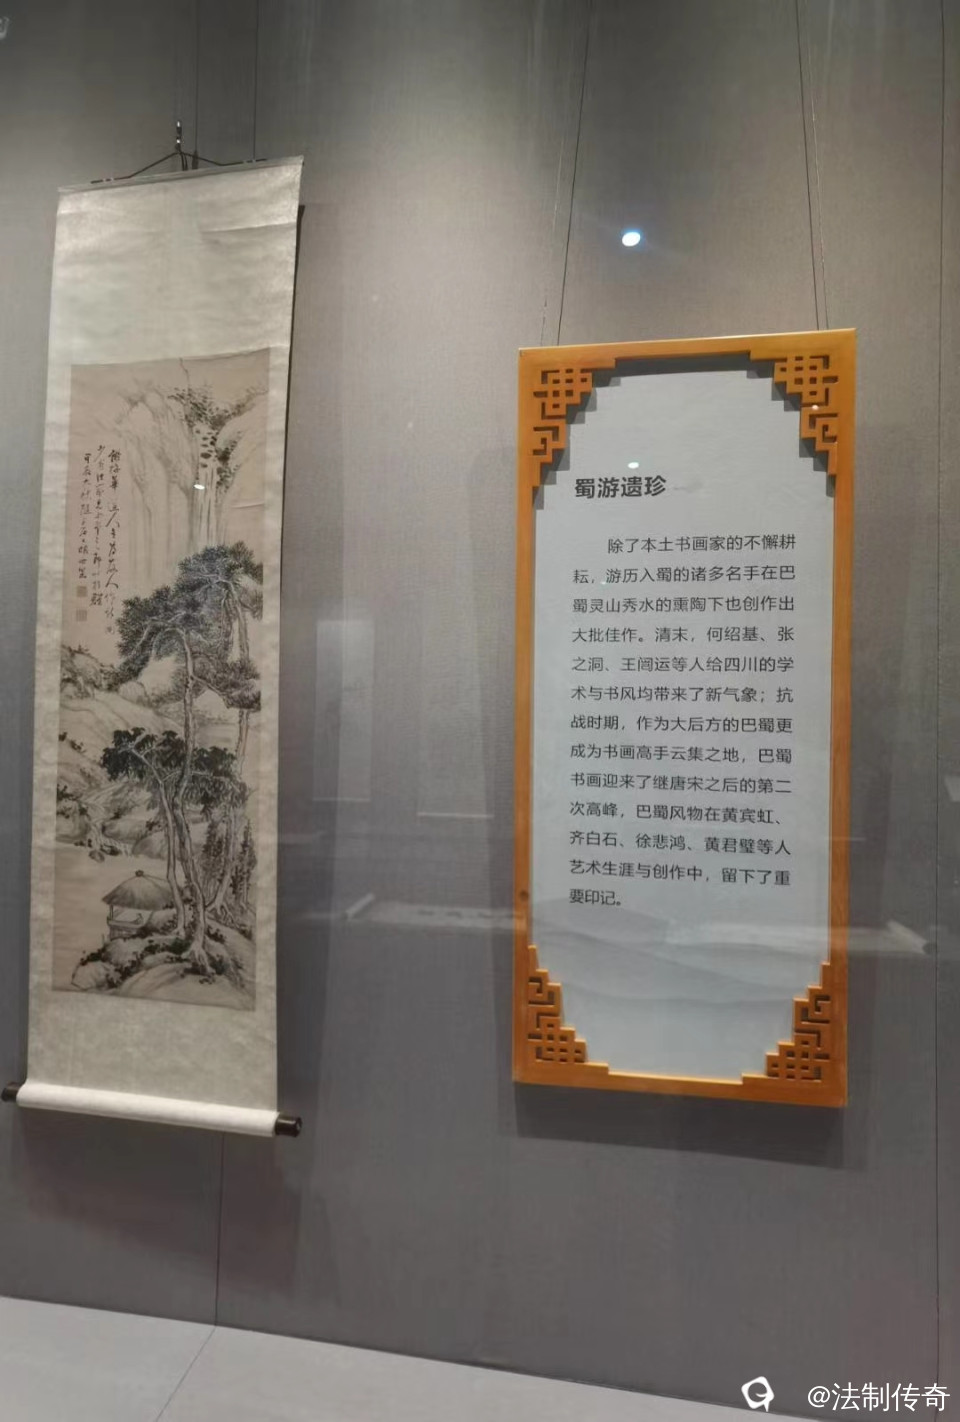 蜀游遗珍
除了本土书画家的不懈耕
耘，游历入蜀的诸多名手在巴
蜀灵山秀水的熏陶下也创作出
大批佳作。清末，何绍基、张
之洞、王闿运等人给四川的学
术与书风均带来了新气象；抗
战时期，作为大后方的巴蜀更
成为书画高手云集之地，巴蜀
书画迎来了继唐宋之后的第二
次高峰，巴蜀风物在黄宾虹、
齐白石、徐悲鸿、黄君璧等人
艺术生涯与创作中，留下了重
要印记。
@法制传奇